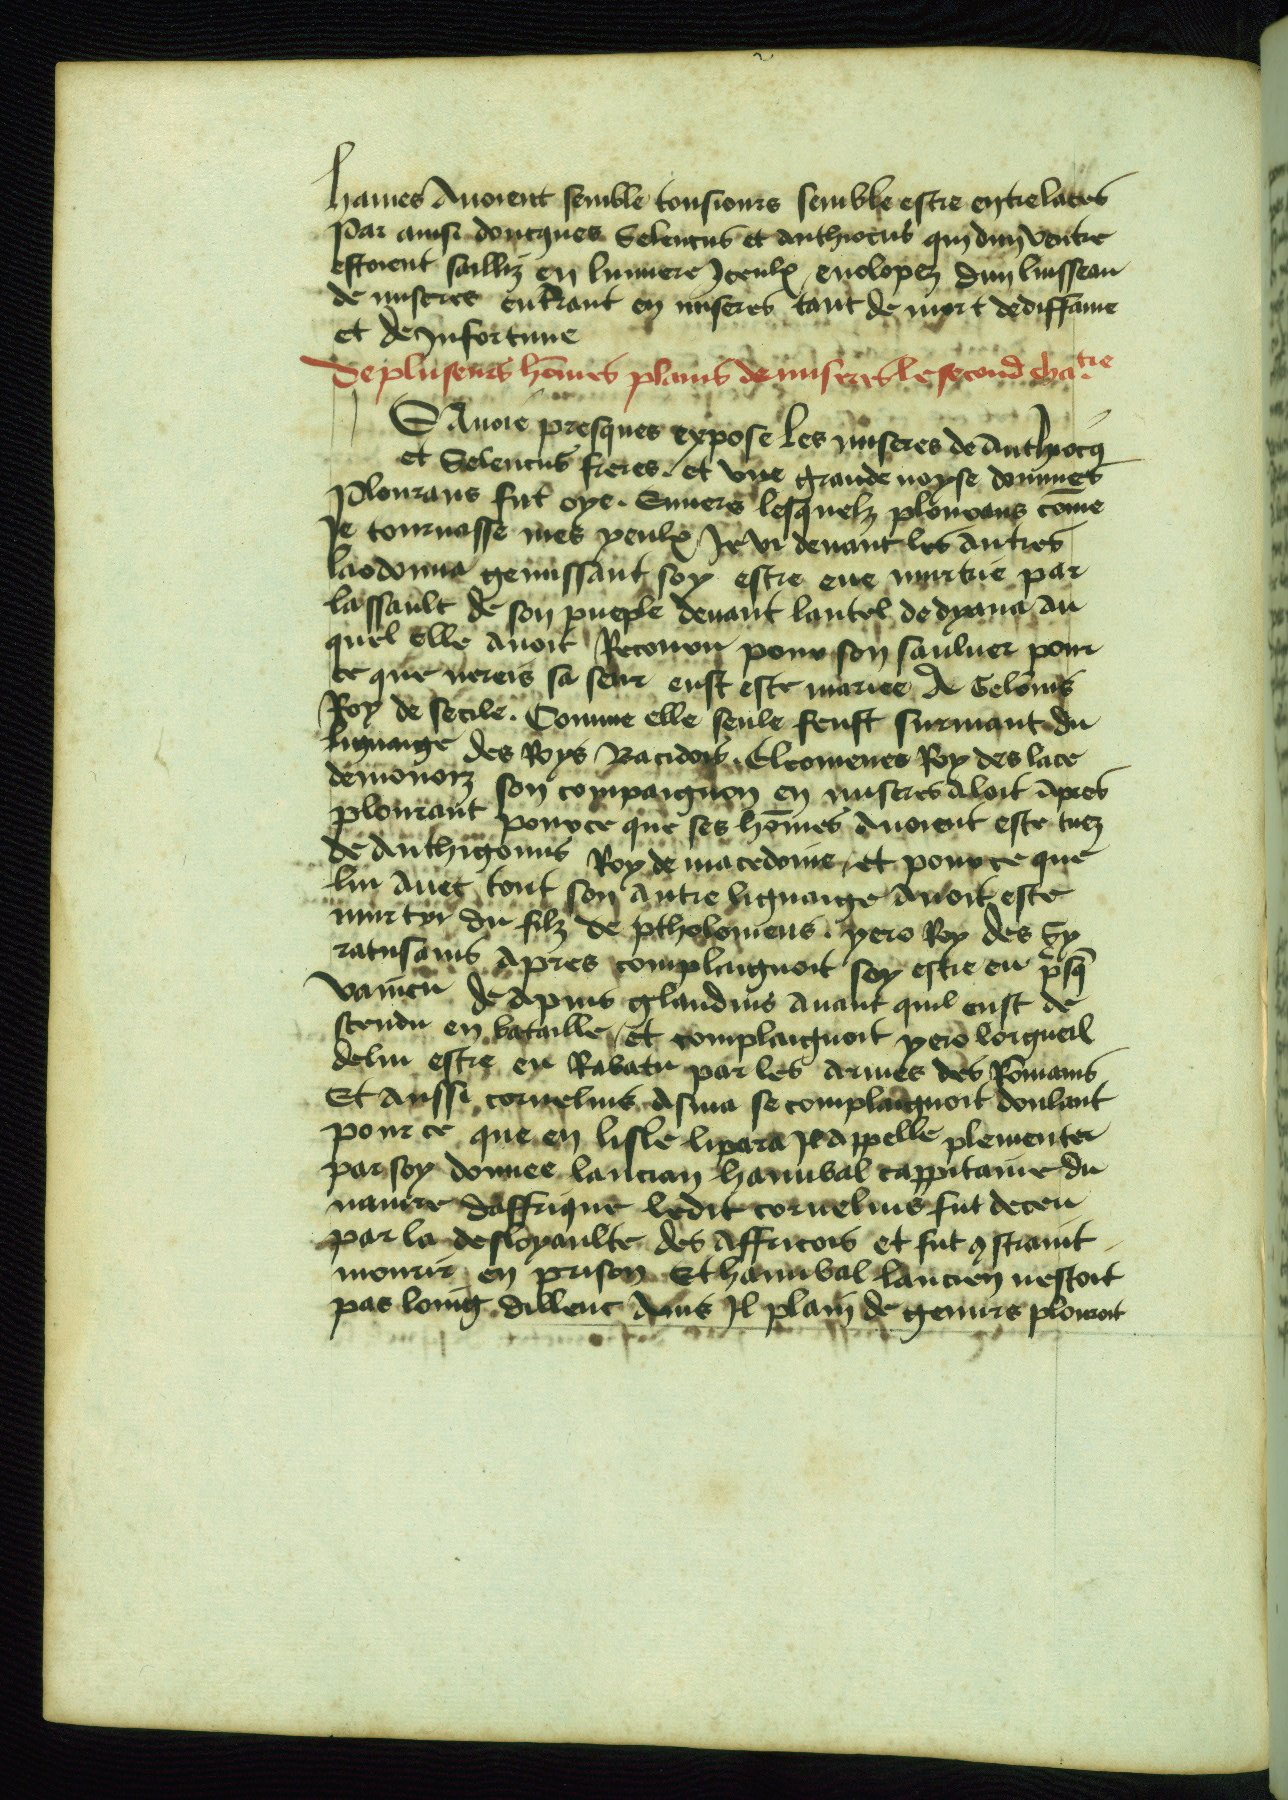 haines Avoient semble tousiours semble estre entrelacees
Par ainsi doncques Seleucus et anthiocus qui dun ventre
estoient sailliz en lumiere Iceulx enolopez dun luisseau
de miseres entrant en miseres tant de mort dediffame
et de Infortune
De pluseurs hom̄es plains de miseres le second cha.tre
I Auoie presques expose les miseres de Anthiocus
et Seleucus freres. et vne grande noyse dommes
Plourans fut oye. Enuers lesquelz plourans com̄e
Ie tournasse mes yeulx Ie vi deuant les Autres
laodomia gemissant soy estre eue murtrie par
lassault de son pueple deuant lautel de dyana Au
quel elle Auoit Recouru pour son sauluer pour
ce que nereis sa seur eust este mariee A Gelonis
Roy de secile. Comme elle seule feust suruiuant du
lignaige des Roys Cleomenes Roy des lace
demonorz son compaignon en miseres Aloit Apres
plourant pource que ses hom̄es Auoient este tuez
de Anthigonus Roy de macedoine, et pource que
lui Auec tout son Autre lignaige Auoit este
murtry du filz de Ptholomeus. yero Roy des Sy
racusains Apres complaignoit soy estre eu p̄sq̄
vaincu de Apius glaudius Auant quil eust de
scendu en bataille, et complaignoit yero lorgueil
delui estre eu Rabatu par les Armes des Romains
Et Aussi cornelius Asina se complaignoit doulant
pour ce que en lisle lipara Il Appelle plementer
par soy donnee lancian hannibal cappitaine du
nauire daffrique ledit cornelius fut deceu
par la desloyaulte des Affricois et fut ꝯstraint
mourir en prison Et hannibal lancien nestoit
pas loing dillenc Ains Il plain de gemirs plouroit